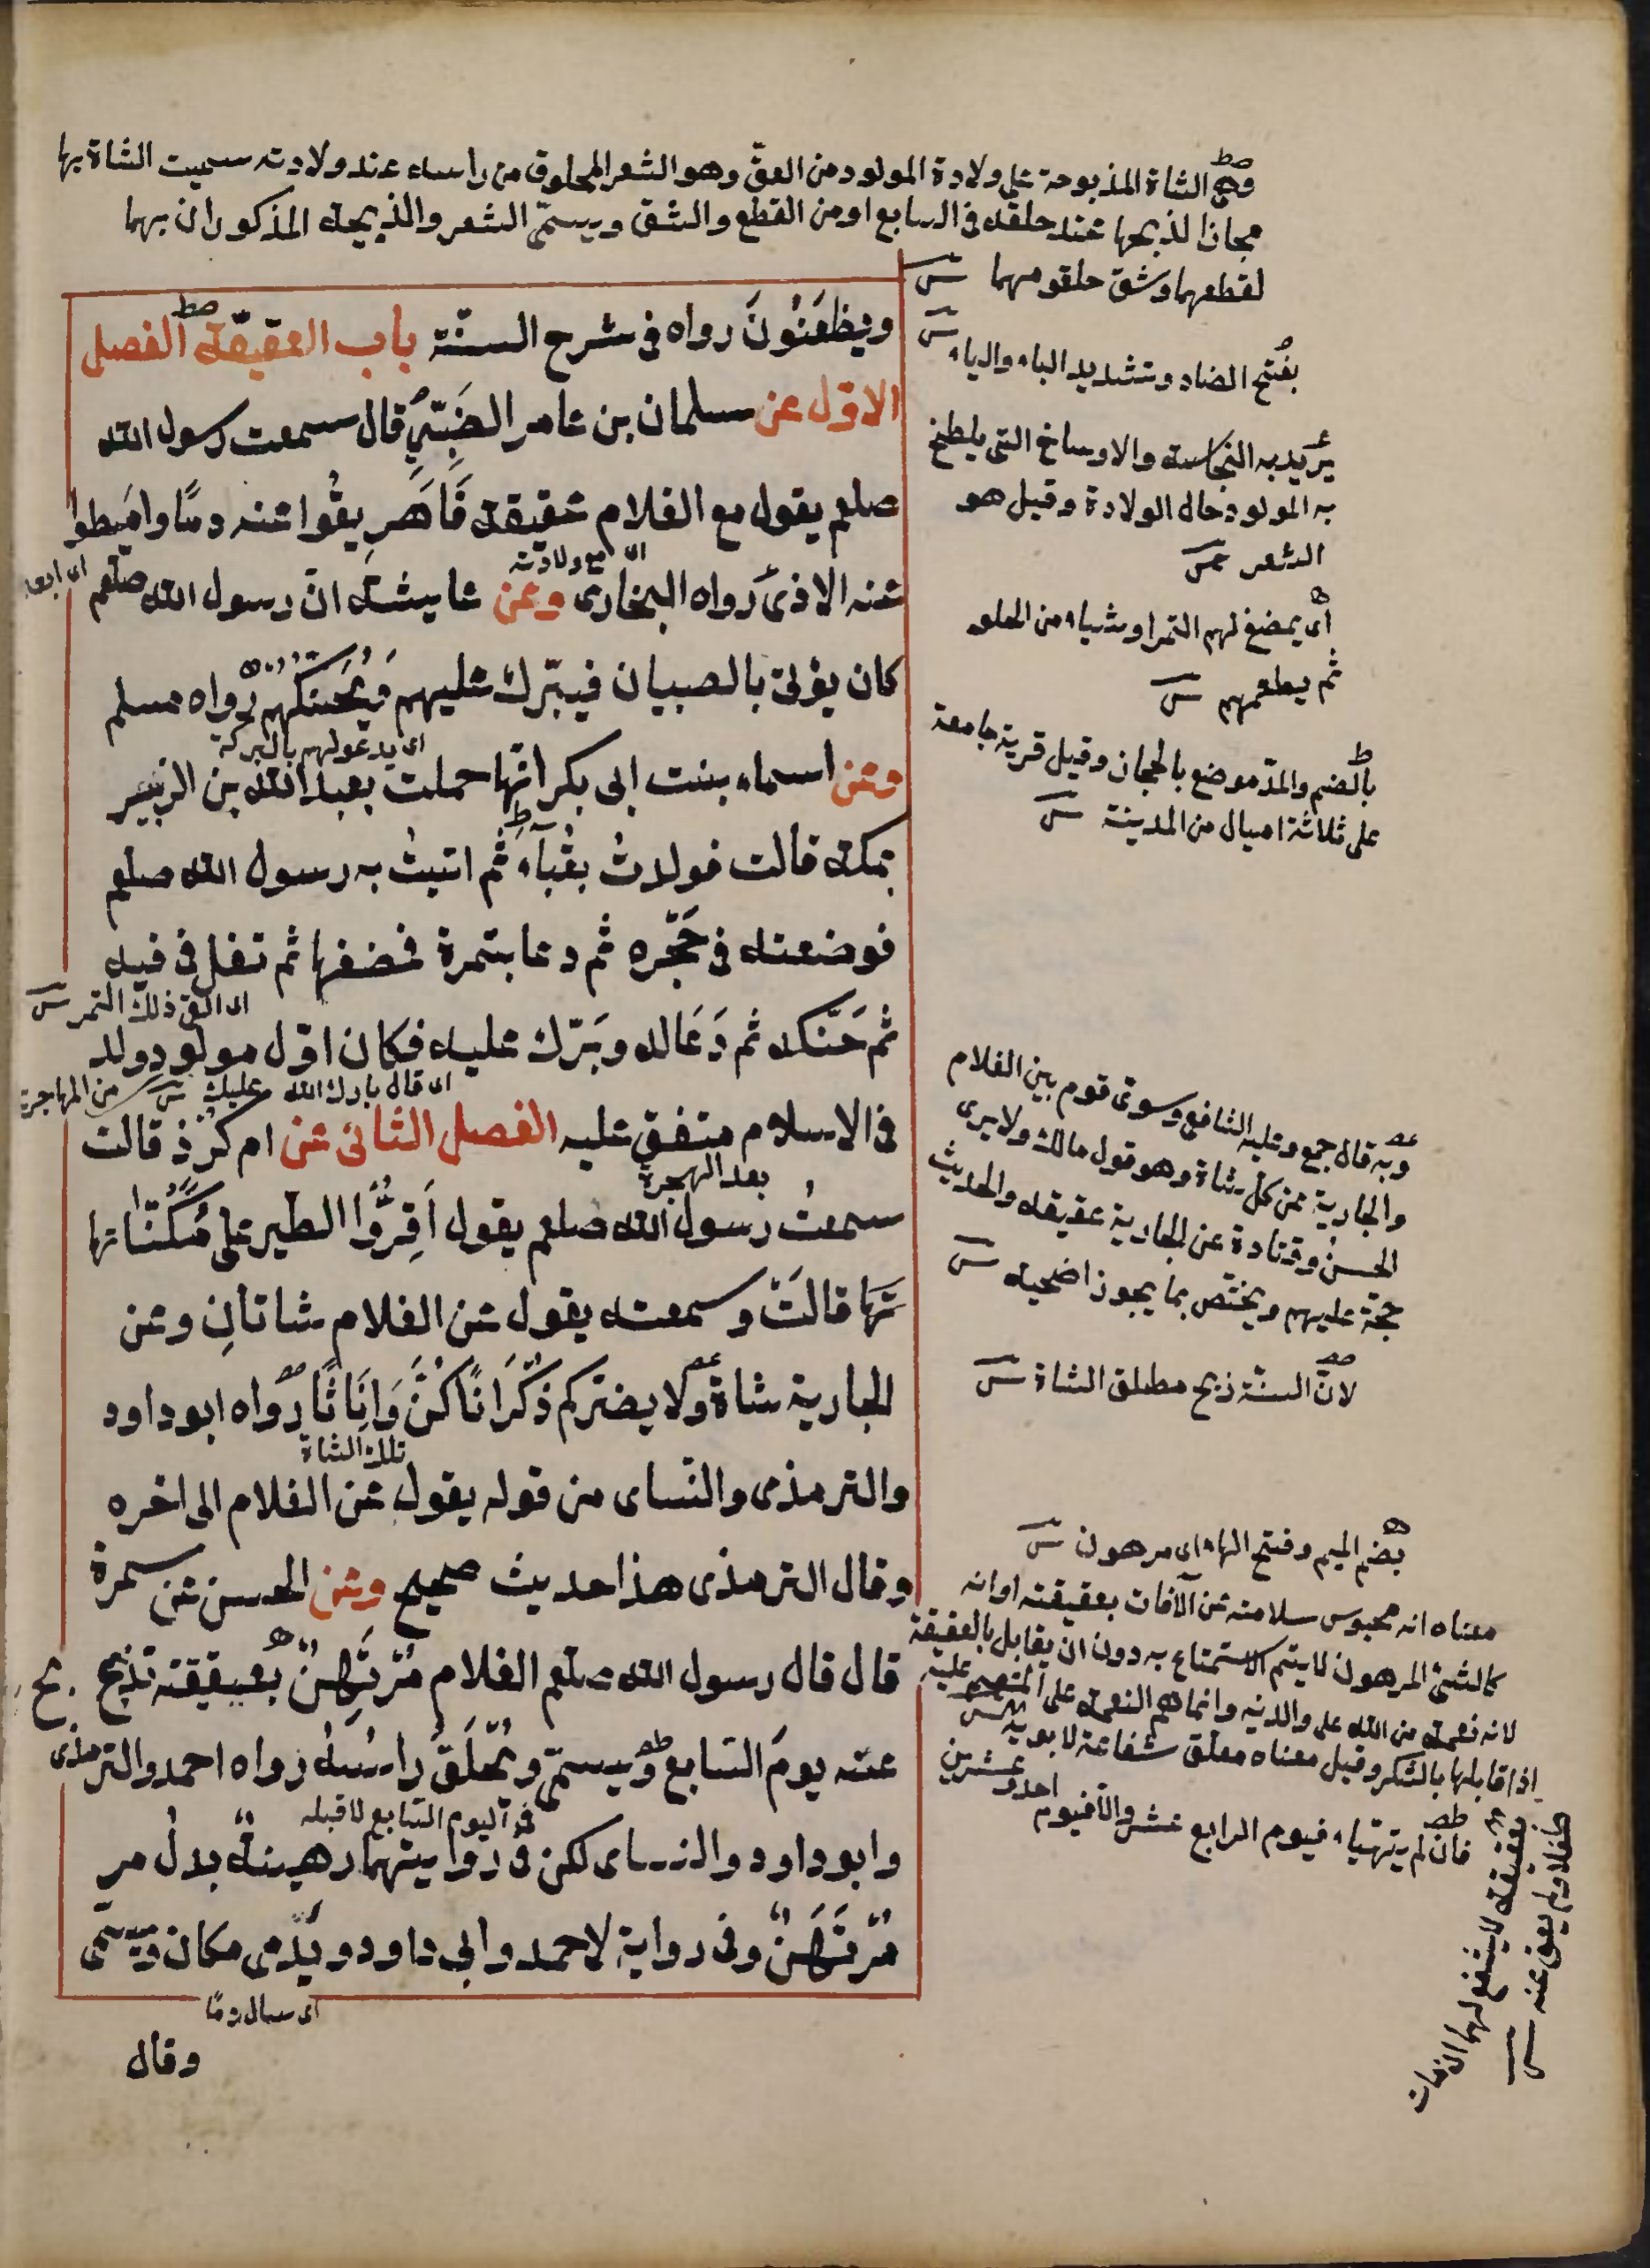 وهي الشاة المذبوحة على ولادة المولود من العقّ وهو الشعر المحلوق من راسه عند ولادته سميت الشاة بها
مجازا لذبحها عند حلقه في السابع او من القطع والشق ويسمّى الشعر والذبيحة المذكوران بهما
لقطعهما وشق حلقومهما
ويظعَنُونَ رواه في شرح السنّة باب العقيقة الفصل
الاوّل عن سلمان بن عامر الضَبّيِّ قال سمعت رسول الله
صلعم يقول مع الغلام عقيقة فَاَهَرِيقُوا عنه دمًا وامَيطوا
اى مع ولادته
عنه الاذىٰ رواه البخارى وعن عايشة انّ رسول الله صلعم
كان يؤتى بالصبيان فيبرّك عليهم وَيُحَنِّكُهُم رواه مسلم
اى يدعو لهم بالبركة
وعن اسماء بنت ابى بكر انّها حملت بعبد الله بن الزبير
بمكة قالت فولدتُ بقُبآء ثم اتيتُ به رسول الله صلعم
فوضعته في حَجْره ثم دعا بتمرة فمضغها ثم تفل في فيه
اى القى ذلك التمر
ثم حَنّكه ثم دَعَا له وبَرّك عليه فكان اوّل مولود ولد
اى قال بارك الله عليك
من المهاجرة
فى الاسلام متفق عليه الفصل الثانى عن ام كُرْز قالت
بعد الهجرة
سمعتُ رسول الله صلعم يقول اَقِرُّوا الطير على مَكُنّاتها
تَهَا قالَتْ وسمعته يقول عن الغلام شاتانِ وعن
الجارية شاة ولا يضرّكم ذُكْرَانًا كُنَّ وَاِنَاثًا رواه ابو داود
تلك الشاة
والترمذى والنّساى من قوله يقول عن الغلام الى اخره
وقال الترمذى هذا حديث صحيح وعن الحسن عن سمرة
قال قال رسول الله صلعم الغلام مُرْتَهِنٌ بعقيقته تذبح
عنه يومَ السّابع ويسمّى ويُحْلَقُ راسُهُ رواه احمد والترمذى
فى اليوم السّابع لا قبله
وابو داود والنساى لكن فى روايتهما رهينةٌ بدل مر
مُرْتَهَنٌ وفى رواية لاحمد وابى داود ويُدَمى مكان ويسمّى
اى سال دمًا
وقال
بفتح الضاد وتشديد الباء والياء
يريد به النجاسة والاوساخ التى يلطخ
به المولود حال الولادة وقيل هو
الشعر
أى يمضغ لهم التمر او شياء من الحلو
ثم يطعمهم
بالضم والمدّ موضع بالحجاز وقيل قرية جامعة
على ثلاثة اميال من المدينة
وبه قال جمع وعليه الشافعى وسوّى قوم بين الغلام
والجارية عن كل شاة وهو قول مالك ولا يرى
الحسن وقتادة عن الجارية عقيقة والحديث
حجّة عليهم ويختصّ بما يجوز اضحية
لانّ السنّة ذبح مطلق الشاة
بضم الميم وفتح الهاء اى مرهون
معناه انه محبوس سلامته عن الآفات بعقيقته او انه
كالشئ المرهون لا يتم الاستمتاع به دون ان يقابل بالعقيقة
لانه نعمة من الله على والديه وانما هم النعمة على المنعم عليه
اذا قابلها بالشكر وقيل معناه معلق شفاعة لابويه
فان لم يتهيّاء فيوم الرابع عشر والا فيوم
احد وعشرين
بعقيقة لا يشفع لهما ان مات
طفلا ولم يعق عنه